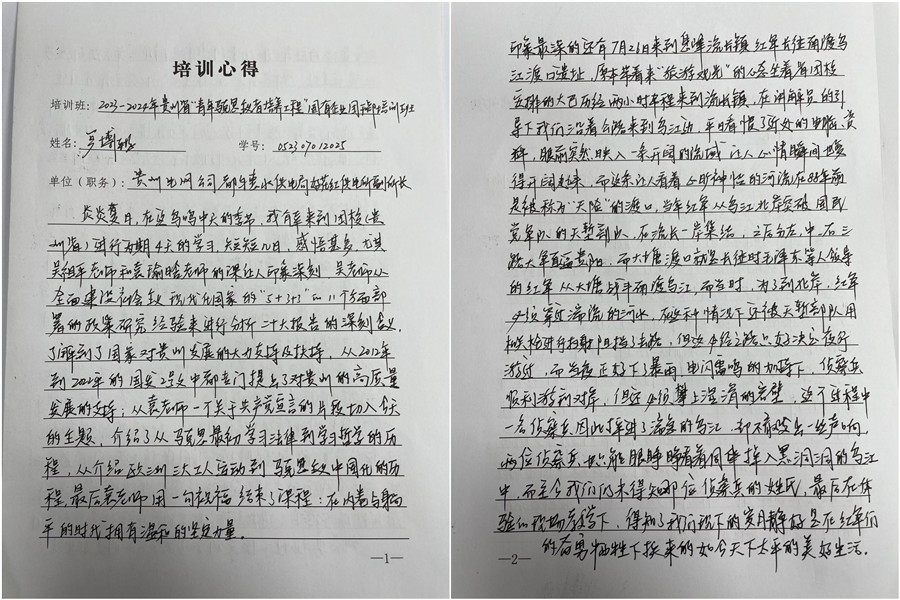 培训心得
培训班：2023-2024年贵州省"青年马克思主义者培养工程"国有企业团干部培训班
姓名：罗博 学号：052307012025
单位（职务）：贵州电网公司都匀供电局供电所副所长
炎炎夏日，在这鸟鸣中天的季节，我有幸来到团校（贵
州省）进行为期4天的学习，短短几日，感悟甚多，尤其
吴组平老师和袁瑜晗老师的课让人印象深刻，吴老师从
全面建设社会主义现代化国家的"5+3+3"的11个方面部
署的政策研究经验来进行分析二十大报告的深刻含义，
了解到了国家对贵州发展的大力支持及扶持，从2012年
到2022年的国发2号文中都专门提出了对贵州的高质量
发展的支持；从袁老师一个关于共产党宣言的片段切入今天
的主题，介绍了从马克思最初学习法律到学习哲学的历
程，从介绍欧洲三大工人运动到马克思主义中国化的历
程，最后袁老师用一句祝福结束了课程：在内卷与躺
平的时代拥有温和的坚定力量。
—1—
印象最深的还有7月26日来到息烽流长镇红军长征南渡乌
江渡口遗址，原本带着来"旅游观光"的心态坐着省团校
安排的大巴历经两小时车程来到流长镇，在讲解员的引
导下我们沿着公路来到乌江边，平日看惯了近处的电脑、资
料，眼前突然映入一条开阔的流域，让人心情瞬间跟变
得开阔起来，而这条让人看着心旷神怡的河流在88年前
是被称为"天险"的渡口，当年红军从乌江北岸突破国民
党军队的天堑部队，在流长一带集结，之后分左、中、右三
路大军直逼贵阳，而大塘渡口就是长征时毛泽东等人领导
的红军从大塘战斗南渡乌江，而当时，为了到北岸，红军
必须穿过湍流的河水，在这种情况下还被天堑部队用
机枪进行扫射阻挡了去路，但这必经之路只好决定夜行
游过，而当夜正好下暴雨，电闪雷鸣的加持下，侦察兵
顺利游到对岸，但还必须攀上湿滑的岩壁，这个过程中
一名侦察兵因此摔进了滚滚的乌江，却不敢发出一丝声响，
两位侦察兵也只能眼睁睁看着同伴掉入黑洞洞的乌江
中，而至今我们仍未得知那位侦察兵的姓氏，最后在体
验的现场教学下，得知了我们现下的岁月静好是在红军们
的奋勇牺牲下换来的如今天下太平的美好生活。
—2—